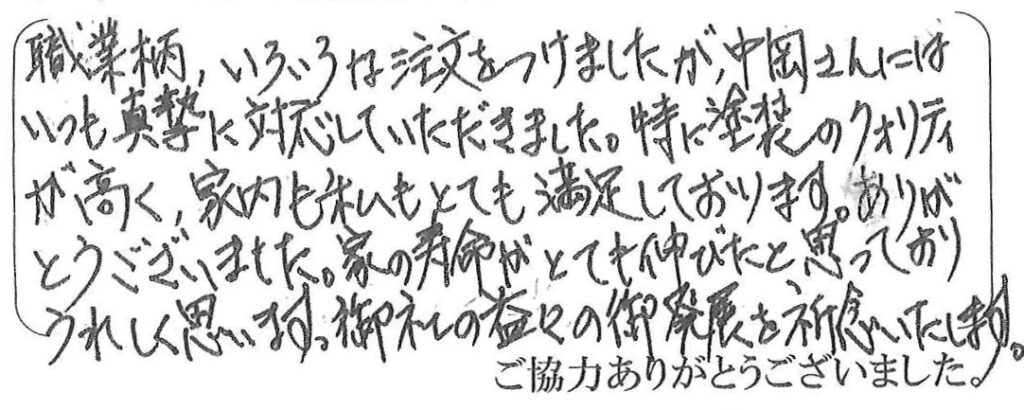 職業柄，いろいろな注文をつけましたが，中岡さんには
いつも真摯に対応していただきました。特に塗装のクォリティ
が高く，家内も私もとても満足しております。ありが
とうございました。家の寿命がとても伸びたと思っており
うれしく思います。御社の益々の御発展を祈念いたします。
ご協力ありがとうございました。